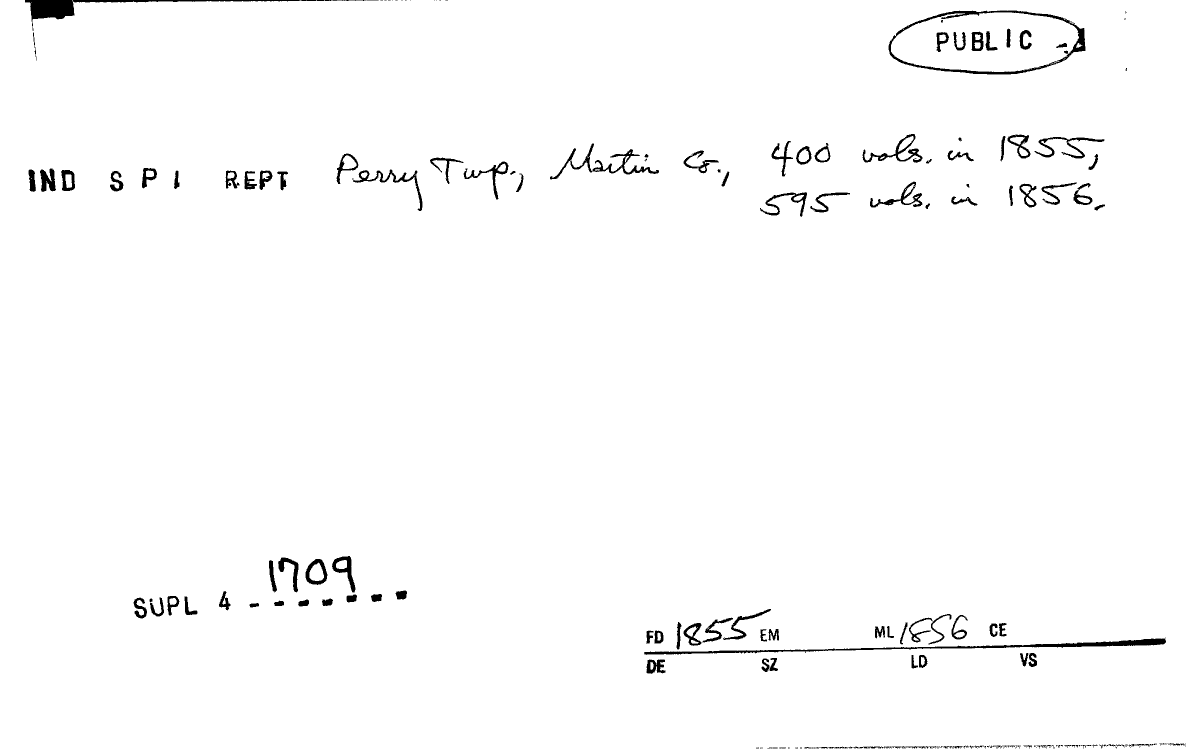 PUBLIC
IND S P I REPT Perry Twp., Martin Co., 400 vols. in 1855,
595 vols. in 1856.
SUPL 4 1709
FD 1855 EM ML 1856 CE
DE SZ LD VS